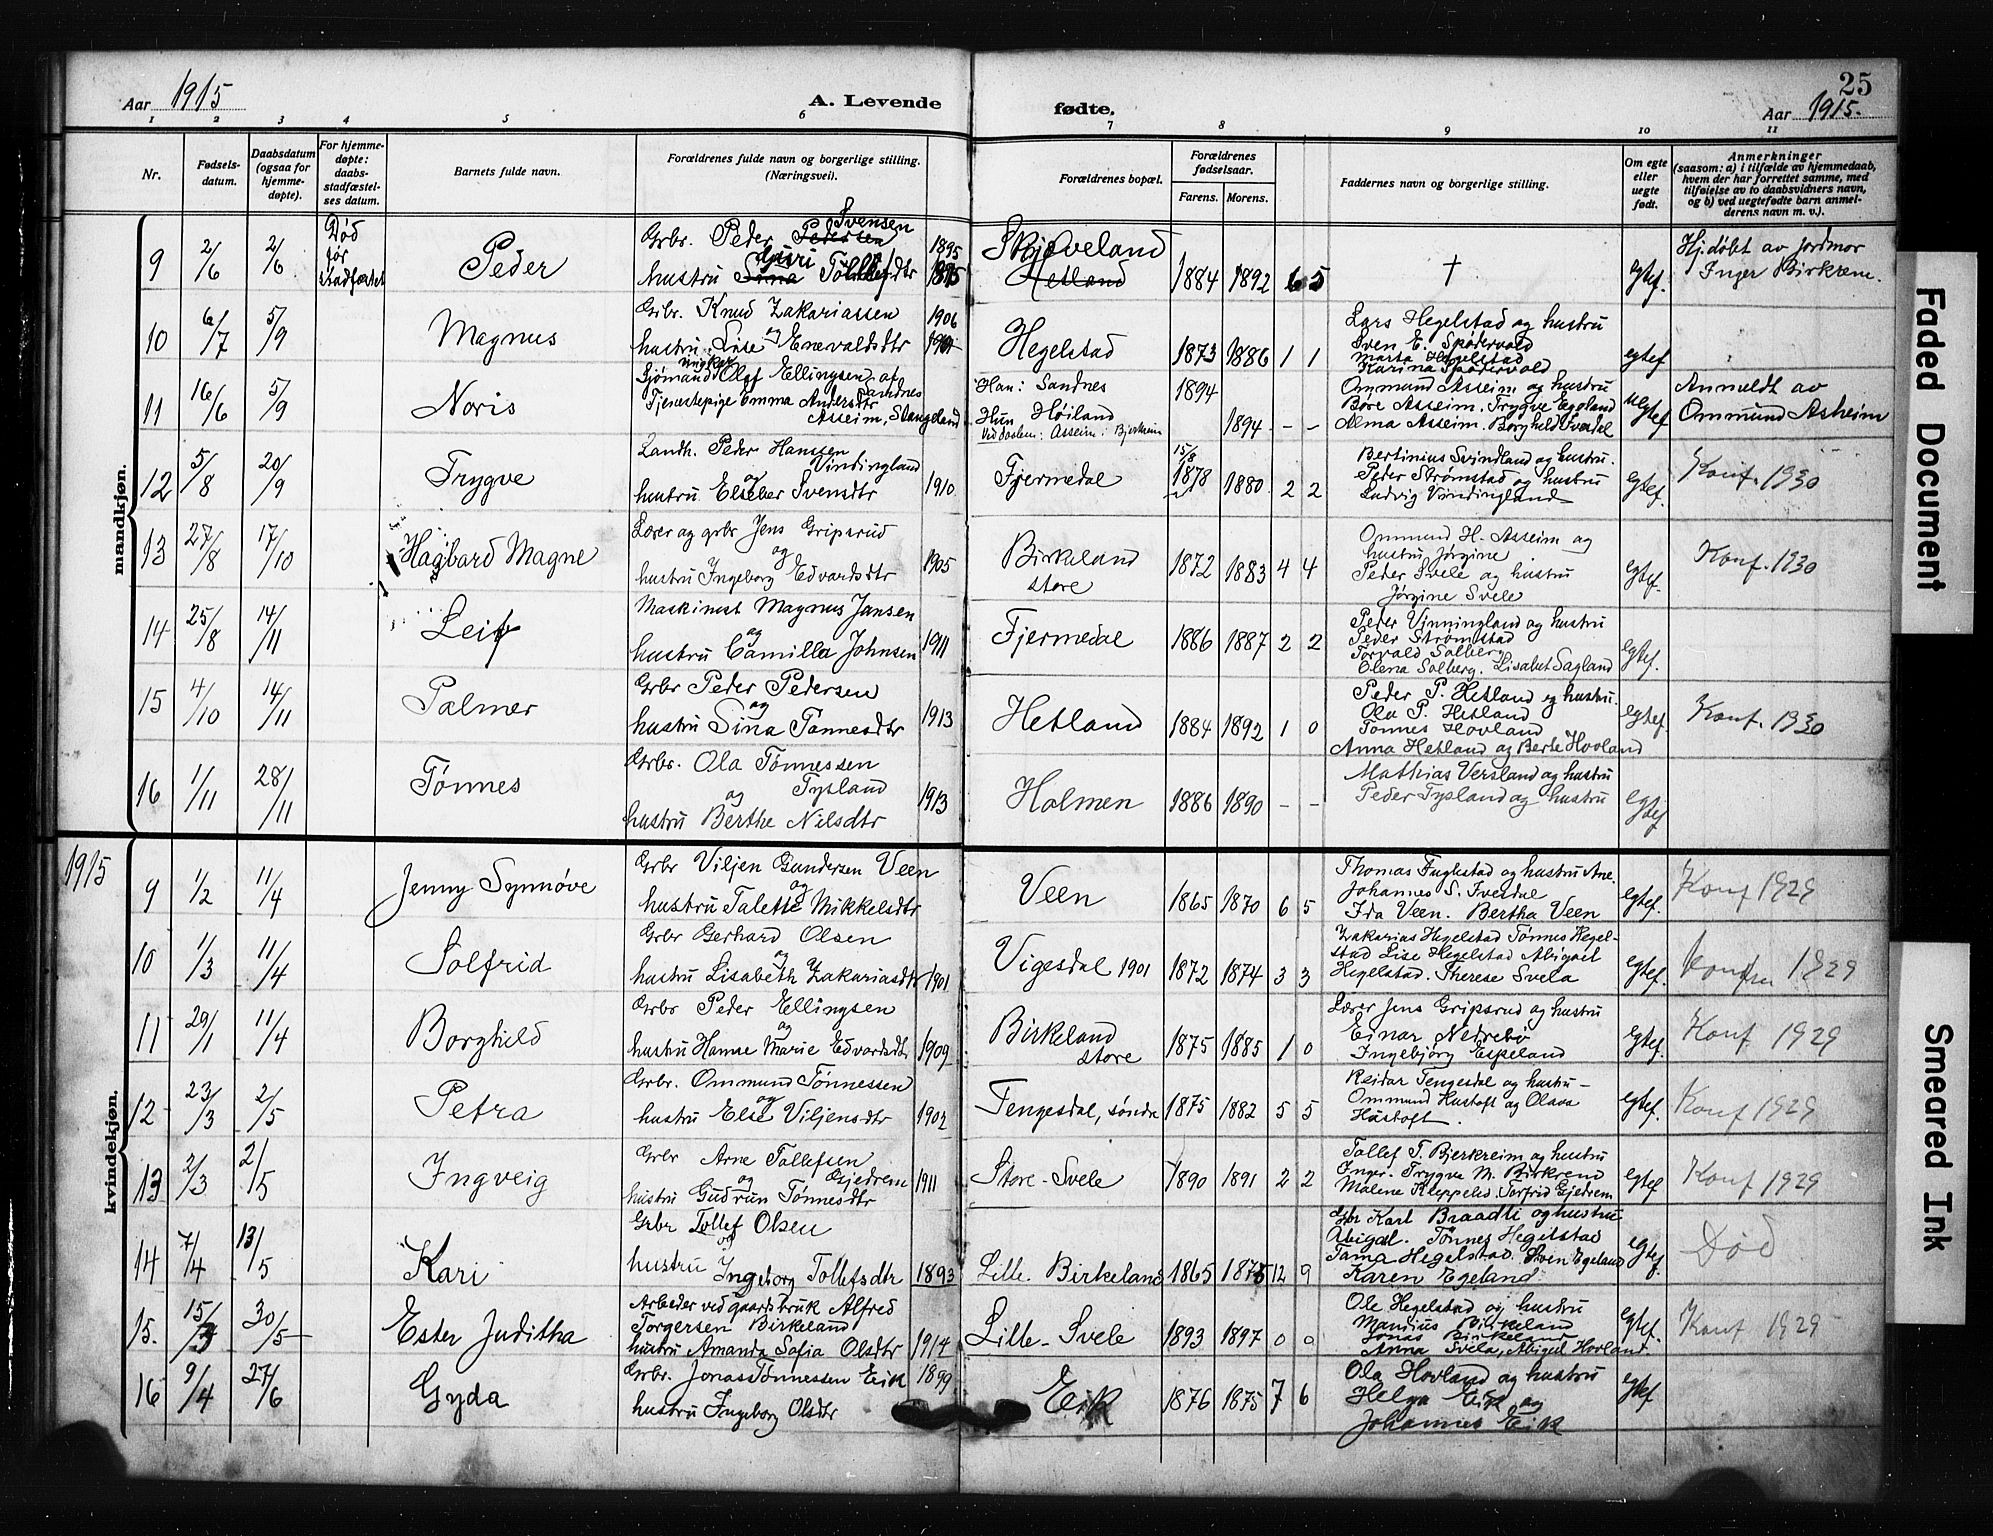 25
Aar 1915
A. Levende
fødte.
Aar 1915.
1 2 3 4 5 6 7 8 9 10 11
Nr.
Fødsels-
datum.
Daabsdatum
(ogsaa for
hjemme-
døpte).
For hjemme-
døpte:
daabs-
stadfæstel-
ses datum.
Barnets fulde navn.
Forældrenes fulde navn og borgerlige stilling.
(Næringsvei).
Forældrenes bopæl.
Forældrenes
fødselsaar.
Farens. Morens.
Faddernes navn og borgerlige stilling.
Om egte
eller
uegte
født.
Anmerkninger
(saasom: a) i tilfælde av hjemmedaab,
hvem der har forrettet samme, med
tilføielse av to daabsvidners navn,
og b) ved uegtefødte barn anmel-
derens navn m. v.).
mandkjøn.
9 2/6 2/6 Død
før
stadfæstet
Peder
Grbr. Peder Pedersen Svensen 1895
hustru Sina Guri Tollefsdtr
Skjæveland
Hetland
1884 1892 6 5
†
egtef.
Hj.døbt av jordmor
Inger Birkrem.
10 6/7 5/9 Magnus
Grbr. Knud Zakariassen 1906
og
hustru Lise Enevaldsdtr
Hegelstad 1873 1886 1 1
Lars Hegelstad og hustru
Sven E. Spødervold
Marta Hegelstad
Karina Spødervold
egtef.
11 16/6 5/9 Noris
ungkar
Sjømand Olaf Ellingsen af
Sandnes
Tjenestepige Emma Andersdtr
Asseim, Stangeland
Han: Sandnes 1894
Hun Høiland
Ved daaben: Asseim: Bjerkreim 1894 - -
Ommund Asseim og hustru
Børe Asseim. Trygve Egeland
Alma Asseim. Borghild Ivesdal
uegtef
Anmeldt av
Ommund Asheim
12 5/8 20/9 Trygve
Landh. Peder Hanssen
Vindingland
og
hustru Elseber Svensdtr 1910
Fjermedal 15/8 1878 1880 2 2
Bertinius Svindland og hustru.
Peder Strømstad og hustru
Ludvig Vindingland
egtef.
Konf. 1930
13 27/8 17/10 Hagbard Magne
Lærer og grbr Jens Gripsrud
og
hustru Ingeborg Edvardsdtr 1905
Birkeland
store
1872 1883 4 4
Ommund H. Asseim og
hustru Jørgine
Peder Svele og hustru
Jørgine Svele
egtef.
Konf. 1930
14 25/8 14/11 Leif
Maskinist Magnus Jansen
og
hustru Camilla Johnsen 1911
Fjermedal 1886 1887 2 2
Peder Vinningland og hustru
Peder Strømstad
Torvald Solberg
Olena Solberg. Lisabet Sagland
egtef.
15 4/10 14/11 Palmer
Grbr Peder Pedersen
og
hustru Sina Tønnesdtr 1913
Hetland 1884 1892 1 0
Peder P. Hetland og hustru.
Ola P. Hetland
Tønnes Hovland
Anna Hetland og Berte Hovland
egtef.
Konf. 1930
16 1/11 28/11 Tønnes
Grbr. Ola Tønnessen
Tysland
og
hustru Berthe Nilsdtr 1913
Holmen 1886 1890 - -
Mathias Versland og hustru
Peder Tysland og hustru
egtef
1915
kvindekjøn.
9 1/2 11/4 Jenny Synnøve
Grbr Viljen Gundersen Veen
og
hustru Talette Mikkelsdtr
Veen 1865 1870 6 5
Thomas Fuglestad og hustru Ane.
Johannes S. Ivesdal
Ida Veen. Bertha Veen
egtef.
Konf 1929
10 1/3 11/4 Solfrid
Grbr Gerhard Olsen
og
hustru Lisabeth Zakariasdtr 1901
Vigesdal 1901 1872 1874 3 3
Zakarias Hegelstad Tønnes Hegel-
stad Lise Hegelstad Abigael
Hegelstad. Therese Svela
egtef.
1929
11 29/1 11/4 Borghild
Grbr Peder Ellingsen
og
hustru Hanse Marie Edvardsdtr 1909
Birkeland
store
1875 1885 1 0
Lærer Jens Gripsrud og hustru
Einar Nedrebø
Ingebjørg Espeland
egtef.
Konf 1929
12 23/3 2/5 Petra
Grbr. Ommund Tønnessen
og
hustru Else Viljensdtr 1902
Tengesdal, søndre 1875 1882 5 5
Reidar Tengesdal og hustru -
Ommund Hustoft og Olava
Hustoft.
egtef.
Konf 1929
13 2/3 2/5 Ingveig
Grbr Arne Tollefsen
Gjedrem
og
hustru Gudrun Tønnesdtr 1911
Store-Svele 1890 1891 2 2
Tollef T. Bjerkreim og hustru
Inger. Trygve M. Birkrem
Malene Kleppelid. Torfrid Gjedrem
egtef
Konf 1929
14 7/4 13/5 Kari
Grbr Tollef Olsen
og
hustru Ingeborg Tollefsdtr 1893
Lille. Birkeland 1865 1875 12 9
Gbr Karl Braadli og hustru
Abigal. Tønnes Hegelstad
Tama Hegelstad. Sven Egeland
Karen Egeland
egtef.
Død
15. 15/3 30/5 Ester Juditha
Arbeder ved gaardsbruk Alfred
Torgersen Birkeland
hustru Amanda Sofia Olsdtr 1914
Lille-Svele 1893 1897 0 0
Ole Hegelstad og hustru
Mandius Birkeland
Jonas Birkeland
Anna Svela, Abigael Hovland.
egtef.
Konf 1929
16 9/4 27/6 Gyda
Grbr. Jonas Tønnessen Eik 1899
hustru Ingeborg Olsdtr
Eik 1876 1875 7 6
Ola Hovland og hustru
Helga Eik og
Johannes Eik
egtef
Faded Document
Smeared Ink